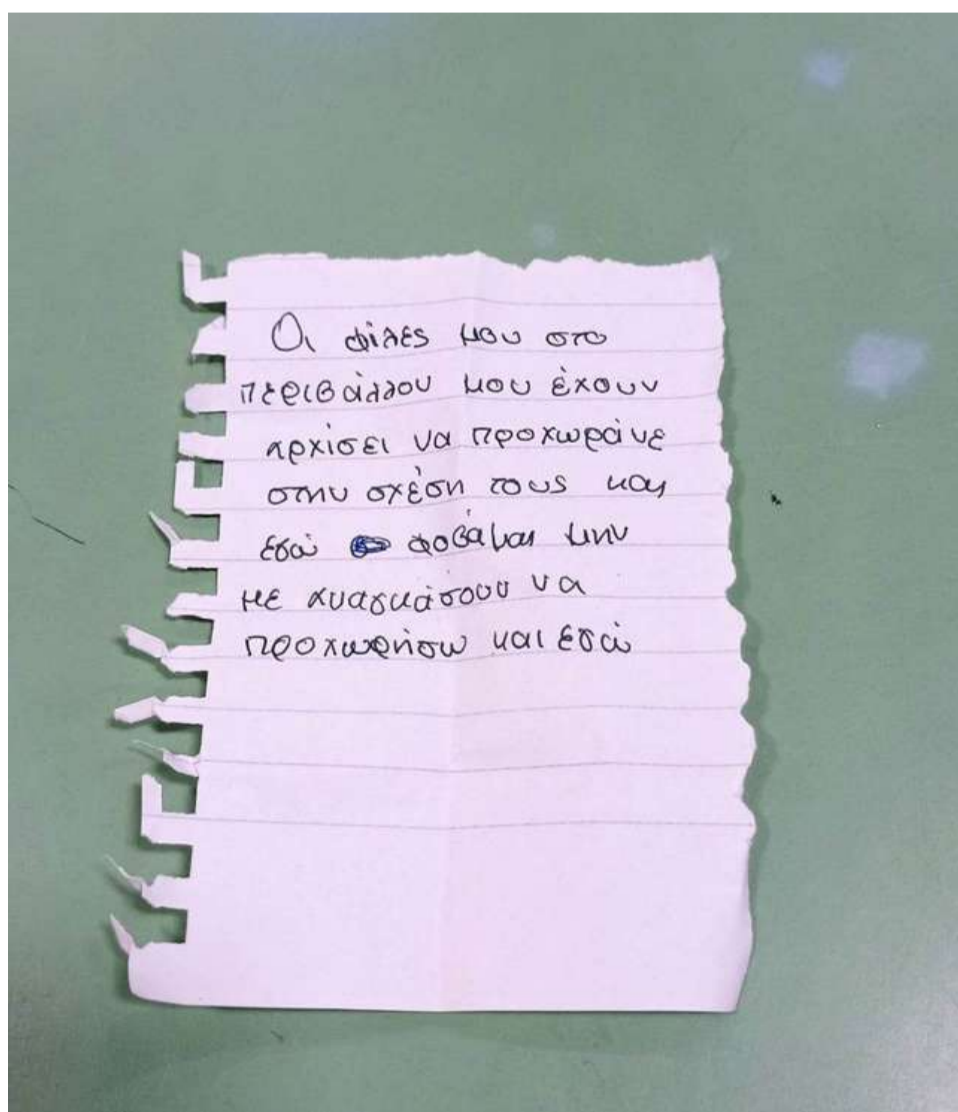 Οι φίλες μου στο
περιβάλλου μου έχουν
αρχίσει να προχωράνε
στην σχέση τους και
εγώ φοβάμαι μην
με αναγκάσουν να
προχωρήσω και εγώ